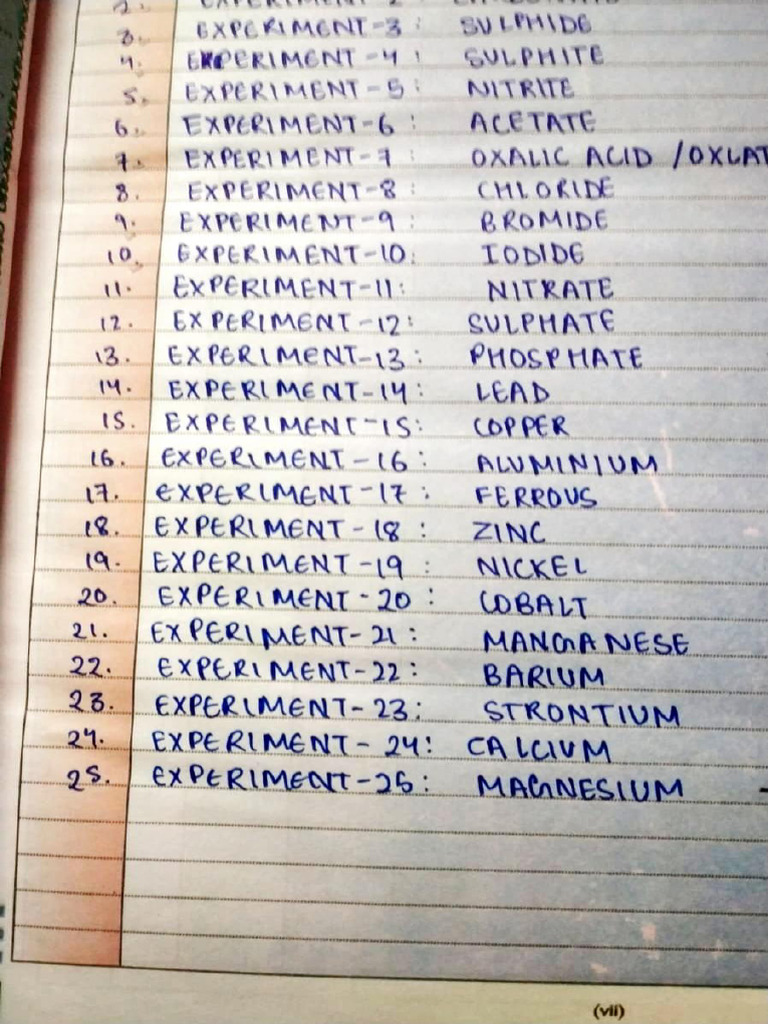 3. EXPERIMENT-3 : SULPHIDE
4. EXPERIMENT-4 : SULPHITE
5. EXPERIMENT-5 : NITRITE
6. EXPERIMENT-6 : ACETATE
7. EXPERIMENT-7 : OXALIC ACID /OXLAT
8. EXPERIMENT-8 : CHLORIDE
9. EXPERIMENT-9 : BROMIDE
10. EXPERIMENT-10: IODIDE
11. EXPERIMENT-11: NITRATE
12. EXPERIMENT-12: SULPHATE
13. EXPERIMENT-13: PHOSPHATE
14. EXPERIMENT-14: LEAD
15. EXPERIMENT-15: COPPER
16. EXPERIMENT-16: ALUMINIUM
17. EXPERIMENT-17: FERROUS
18. EXPERIMENT-18: ZINC
19. EXPERIMENT-19: NICKEL
20. EXPERIMENT-20: COBALT
21. EXPERIMENT-21: MANGANESE
22. EXPERIMENT-22: BARIUM
23. EXPERIMENT-23: STRONTIUM
24. EXPERIMENT-24: CALCIUM
25. EXPERIMENT-25: MAGNESIUM
(vii)